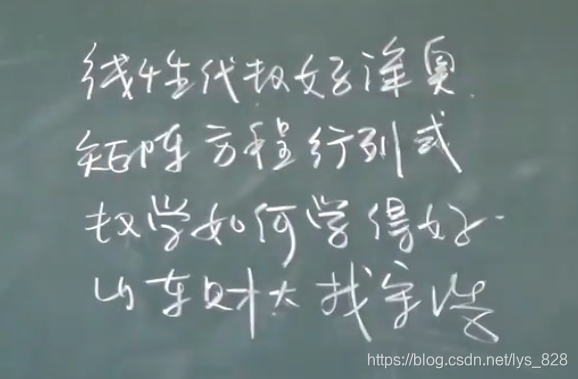 线性代数好深奥
矩阵方程行列式
数学如何学得好
山东财大找宋浩
https://blog.csdn.net/lys_828